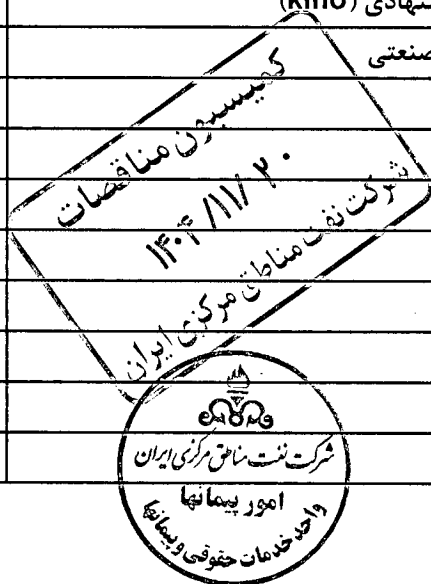 شنهادی (kmo)
صنعتی
کمیسیون مناقصات
۱۴۰۴/۱۱/۲۰
شرکت نفت مناطق مرکزی ایران
شرکت نفت مناطق مرکزی ایران
امور پیمانها
واحد خدمات حقوقی و پیمانها